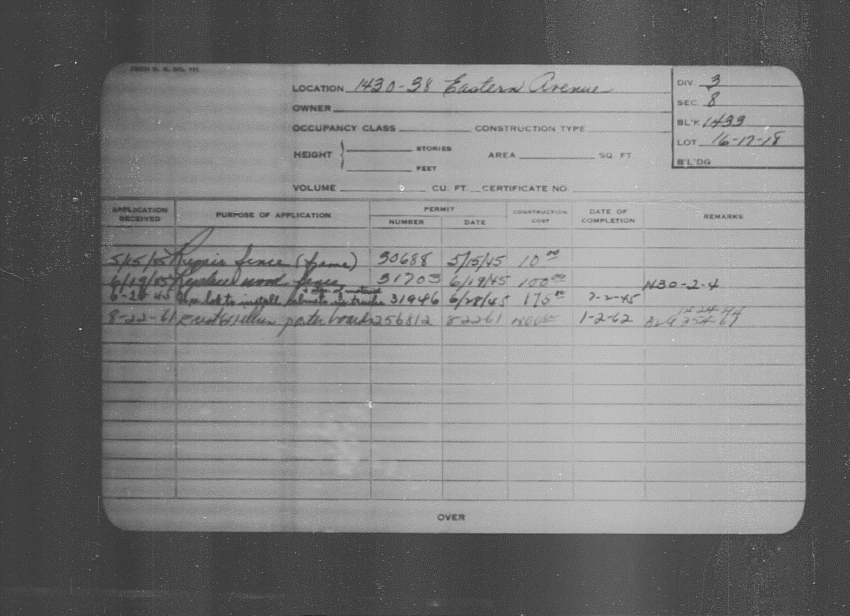 LOCATION 1430-38 Eastern Avenue
DIV 3
SEC 8
BL'K 1433
LOT 16-17-18
B'L'DG
OWNER
OCCUPANCY CLASS CONSTRUCTION TYPE
HEIGHT STORIES FEET AREA SQ. FT
VOLUME CU. FT. CERTIFICATE NO.
APPLICATION RECEIVED PURPOSE OF APPLICATION PERMIT NUMBER DATE CONSTRUCTION COST DATE OF COMPLETION REMARKS
5/15/45 Repair fence (frame) 30688 5/15/45 10 00
6/19/45 wood fence 31703 6/19/45 100 00 1430-2-4
lot to install in trucks 31946 6/28/45 175 00 7-2-45
8-22-61 poster boards 256812 82261 1-2-62
OVER